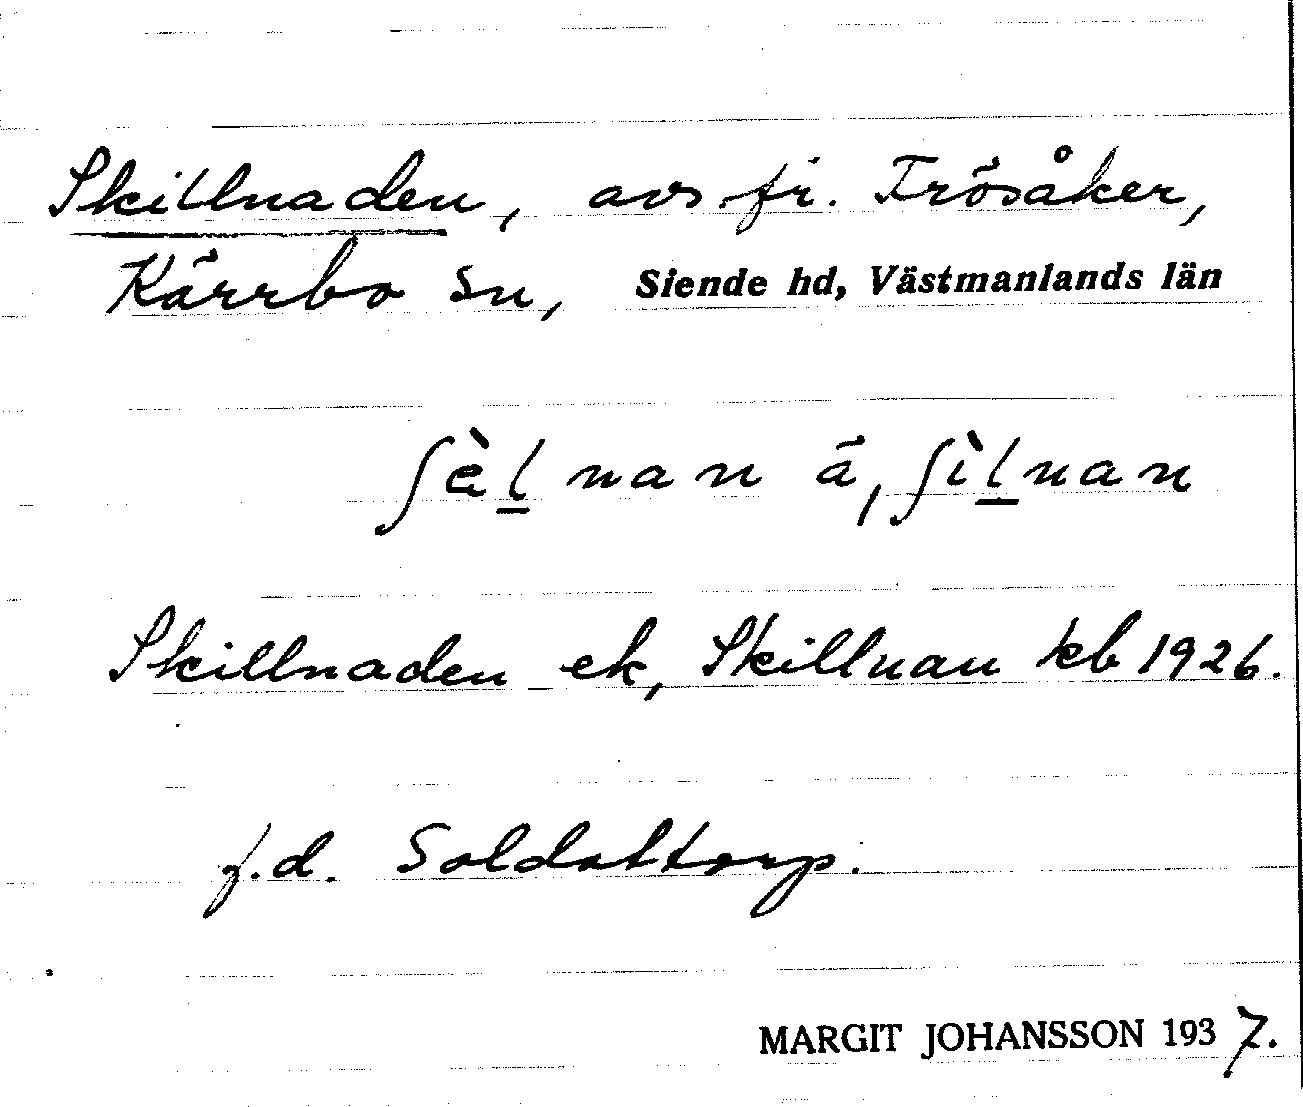 Skillnaden, avs. fr. Frösåker,
Kärrbo sn, Siende hd, Västmanlands län
ʃè̱lnan ä, ʃìḻnan
Skillnaden ek, Skillnan kb 1926.
f.d. Soldattorp.
MARGIT JOHANSSON 1937.